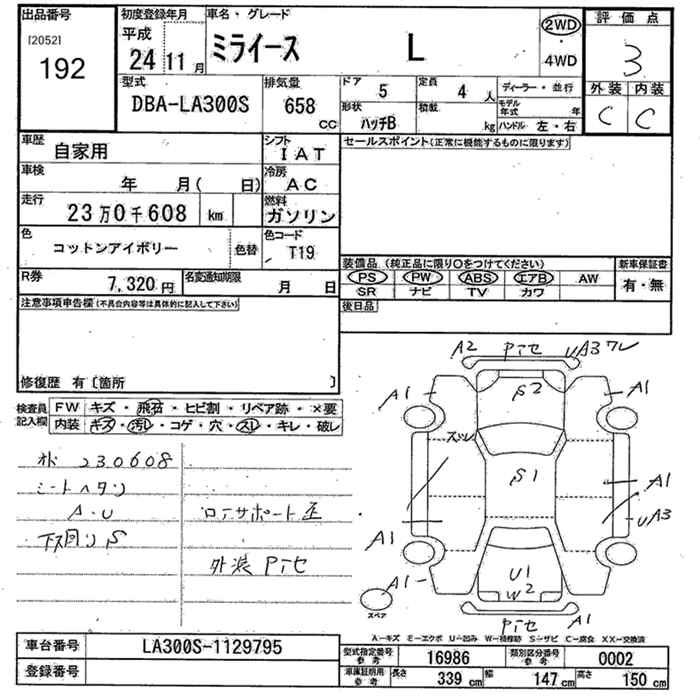 出品番号
[2052]
192
初度登録年月
平成
24 11 月
車名・グレード
ミライース L
2WD
・
4WD
評価点
3
外装 内装
C C
型式
DBA-LA300S
排気量
658 CC
ドア 5
定員 4 人
形状 ハッチB
積載 kg
ディーラー・並行
モデル年式 年
ハンドル 左・右
車歴
自家用
シフト
IAT
車検
年 月( 日)
冷房
AC
走行
23万0千608 km
燃料
ガソリン
色
コットンアイボリー
色替
色コード
T19
R券
7,320円
名変通知期限
月 日
セールスポイント(正常に機能するものに限ります)
装備品(純正品に限り○をつけてください)
新車保証書
PS PW ABS エアB AW
有・無
SR ナビ TV カワ
後日品
注意事項申告欄(不具合内容等は具体的に記入して下さい)
修復歴 有〔箇所 〕
検査員
記入欄
FW キズ・飛石・ヒビ割・リペア跡・×要
内装 キズ・汚レ・コゲ・穴・スレ・キレ・破レ
230608
シートヘタリ
A・U
下回りS
ロアサポート歪
外装 Pアセ
A2 Pアセ UA3ワレ
A1 S2 A1
S1
A1
UA3
A1
A1
U1
W2
スペア
Pアセ A1
A-キズ E-エクボ U-凹み W-補修跡 S-サビ C-腐食 XX-交換済
車台番号 LA300S-1129795
登録番号
型式指定番号
参考
16986
類別区分番号
参考
0002
車庫証明用
参考
長さ 339 cm
幅 147 cm
高さ 150 cm